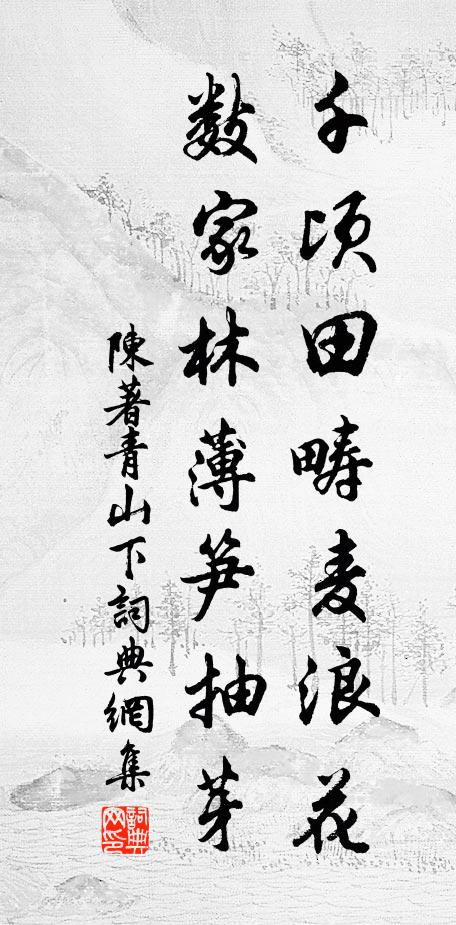 千顷田畴麦浪花
数家林薄笋抽芽
陳著青山下詞典網集
詞典网印